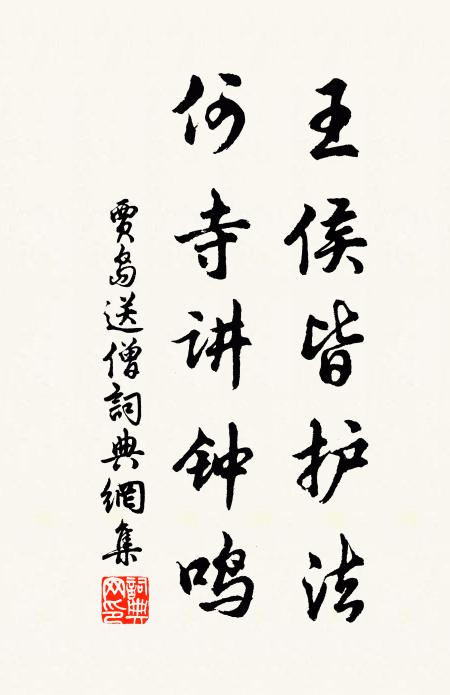 王侯皆护法
何寺讲钟鸣
賈島送僧詞典網集
詞典網印